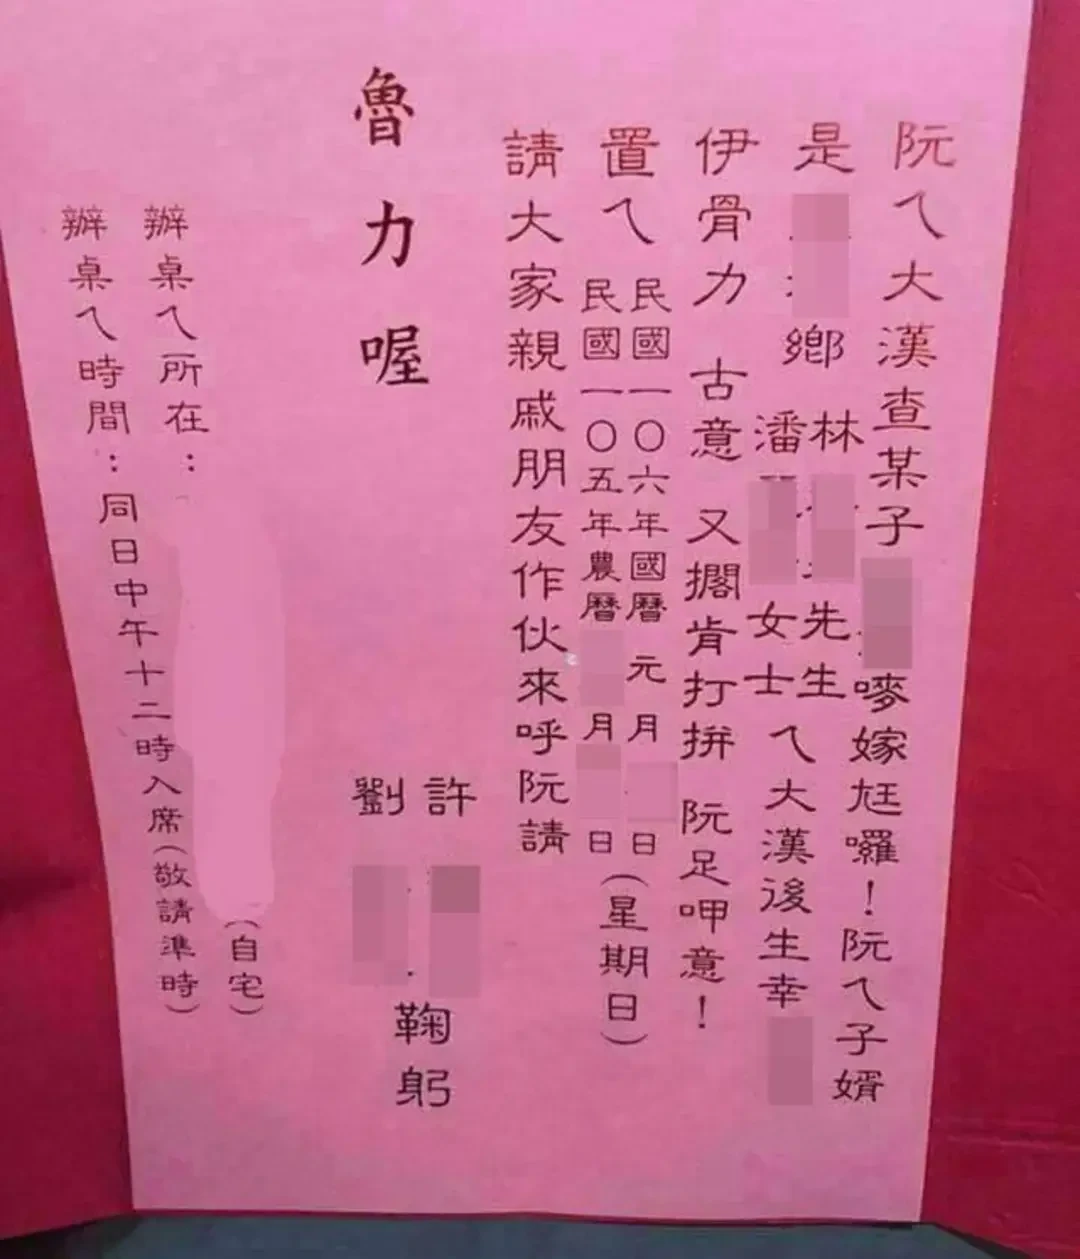 阮ㄟ大漢查某子 嘜嫁尪囉！阮ㄟ子婿
是 鄉 林 先生
潘 女士 ㄟ大漢後生幸
伊骨力 古意 又擱肯打拼 阮足呷意！
置ㄟ 民國一〇六年國曆 元月 日
民國一〇五年農曆 月 日 (星期日)
請大家親戚朋友作伙來呼阮請
魯力喔
許
劉
鞠躬
辦桌ㄟ所在： (自宅)
辦桌ㄟ時間：同日中午十二時入席(敬請準時)